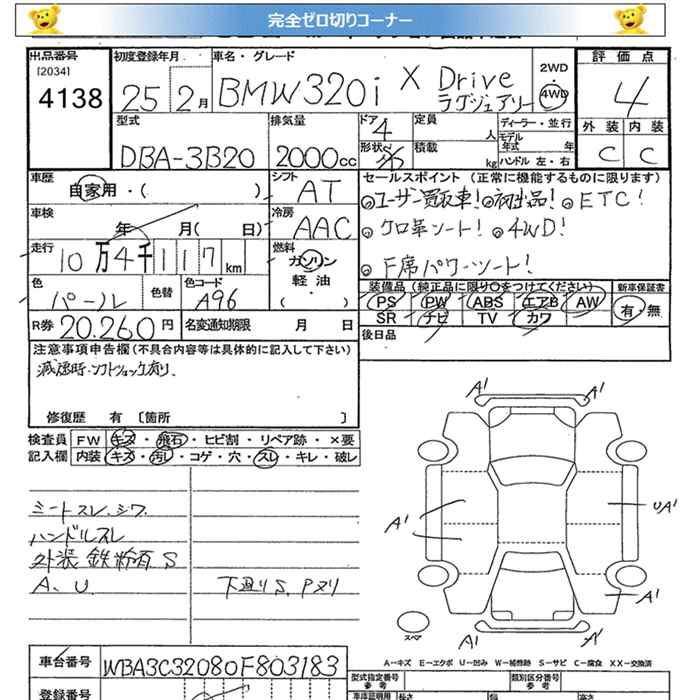 完全ゼロ切りコーナー
出品番号 初度登録年月 車名・グレード 2WD 評価点
[2034]
4138 25 2月 BMW320i X Drive ラグジュアリー 4WD 4
型式 排気量 ドア 4 定員 人 ディーラー・並行 外装 内装
DBA-3B20 2000cc 形状 積載 kg モデル年式 年 ハンドル 左・右 C C
車歴 自家用・( ) シフト AT セールスポイント(正常に機能するものに限ります)
車検 年 月( 日) 冷房 AAC ◎ユーザー買取車!◎初出品!◎ETC!
◎クロ革シート!◎4WD!
走行 10万4千117km 燃料 ガソリン
軽油
( )
◎F席パワーシート!
色 パール 色替 色コード A96 装備品(純正品に限り○をつけてください) 新車保証書
PS PW ABS エアB AW 有・無
R券 20,260円 名変通知期限 月 日 SR ナビ TV カワ
注意事項申告欄(不具合内容等は具体的に記入して下さい) 後日品
減速時、シフトショック有り.
修復歴 有 [箇所 ]
検査員 FW キズ・飛石・ヒビ割・リペア跡・×要
記入欄 内装 キズ・汚レ・コゲ・穴・スレ・キレ・破レ
A1 A1
シートスレ、シワ
ハンドルスレ
外装 鉄粉有 S
A、U 下廻りS、Pヌリ
A1 UA1
A1
スペア A1 A1
A-キズ E-エクボ U-凹み W-補修跡 S-サビ C-腐食 XX-交換済
車台番号 WBA3C32080F803183 型式指定番号 参考 類別区分番号 参考
登録番号 車庫証明用 長さ 幅 高さ